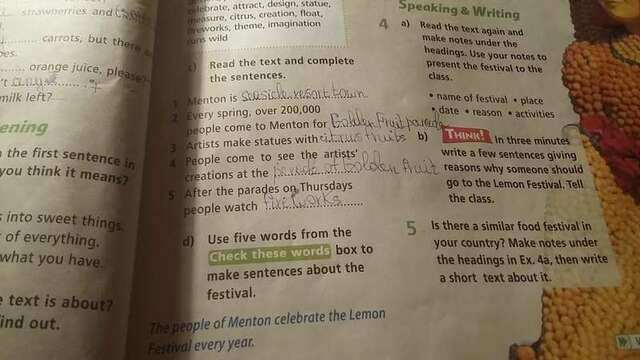 strawberries and
carrots, but there a
es.
orange juice, please?
milk left?
ening
n the first sentence in
you think it means?
s into sweet things.
t of everything,
what you have.
e text is about?
ind out.
celebrate, attract, design, statue,
measure, citrus, creation, float,
fireworks, theme, imagination
runs wild
c) Read the text and complete
the sentences.
1 Menton is seaside resort town
2 Every spring, over 200,000
people come to Menton for Golden Fruit parade
3 Artists make statues with citrus fruits
4 People come to see the artists'
creations at the parade of Golden Fruit
5 After the parades on Thursdays
people watch fireworks
d) Use five words from the
Check these words box to
make sentences about the
festival.
The people of Menton celebrate the Lemon
Festival every year.
Speaking & Writing
4 a) Read the text again and
make notes under the
headings. Use your notes to
present the festival to the
class.
• name of festival • place
• date • reason • activities
b) THINK! In three minutes
write a few sentences giving
reasons why someone should
go to the Lemon Festival. Tell
the class.
5 Is there a similar food festival in
your country? Make notes under
the headings in Ex. 4a, then write
a short text about it.